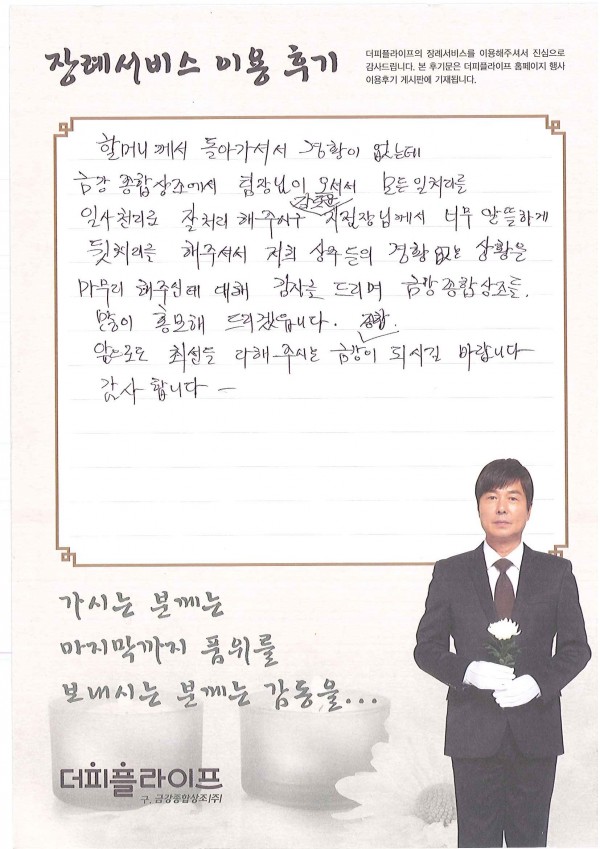 장례서비스 이용 후기
더피플라이프의 장례서비스를 이용해주셔서 진심으로
감사드립니다. 본 후기문은 더피플라이프 홈페이지 행사
이용후기 게시판에 기재됩니다.
할머니께서 돌아가셔서 경황이 없는데
금강 종합상조에서 팀장님이 오셔서 모든 일처리를
일사천리로 잘처리 해주시구 지점장님께서 너무 알뜰하게
뒷처리를 해주셔서 저희 상주들의 경황 없는 상황을
마무리 해주신데 대해 감사를 드리며 금강종합상조를.
많이 홍보해 드리겠습니다. 종합.
앞으로도 최선을 다해 주시는 금강이 되시길 바랍니다
감사 합니다 —
가시는 분께는
마지막까지 품위를
보내시는 분께는 감동을...
더피플라이프
구. 금강종합상조(주)